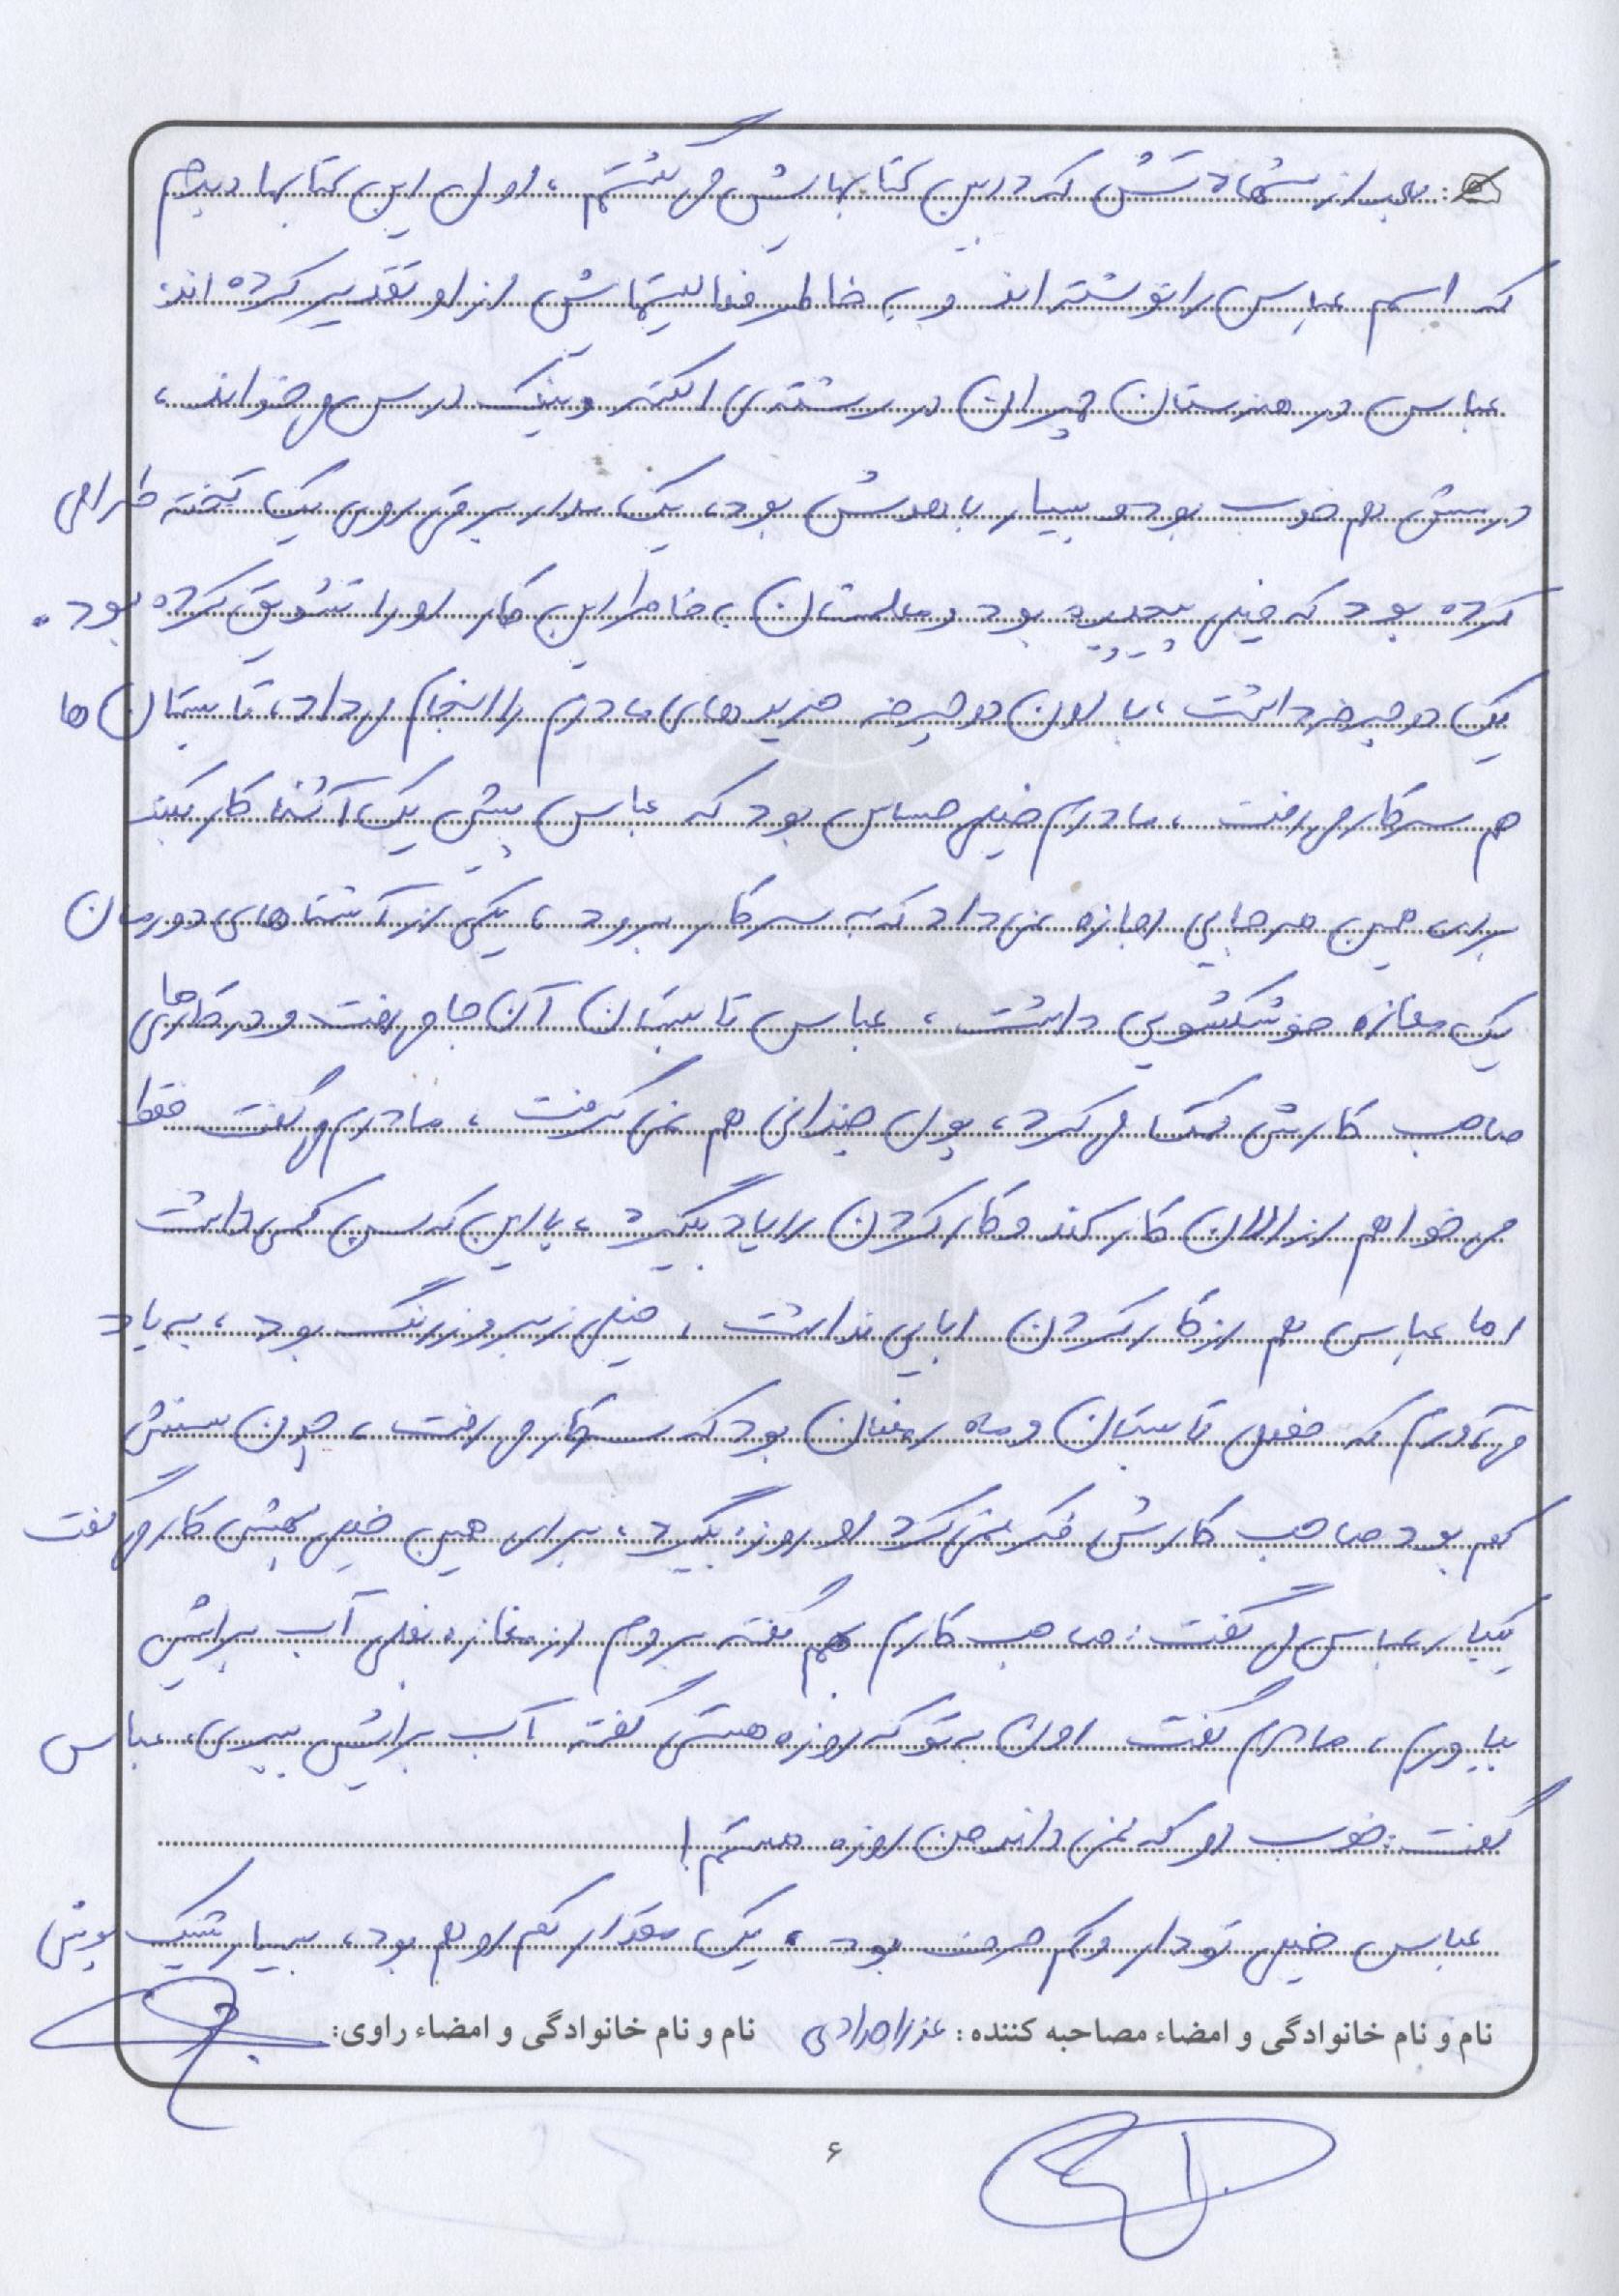 بعد از شهادتش که در بین کتابهایش می گشتم، اول این کتابها دیدم
که اسم عباس را نوشته اند و به خاطر فعالیتهایش از او تقدیر کرده اند
عباس در هنرستان چمران در رشته ی الکترونیک درس می خواند،
درسش هم خوب بود و بسیار باهوش بود، یک مدار برقی روی یک تخته طراحی
کرده بود که خیلی پیچیده بود و معلمشان به خاطر این کار او را تشویق کرده بود.
یک دوچرخه داشت، با اون دوچرخه خریدهای مادرم را انجام می داد، تابستان ها
هم سرکار می رفت، مادرم خیلی حساس بود که عباس پیش یک آشنا کار بکند
برای همین هرجایی اجازه نمی داد که به سرکار برود، یکی از آشناهای دورمان
یک مغازه خشکشویی داشت، عباس تابستان آن جا می رفت و در کارهای
صاحب کارش کمک می کرد، پول چندانی هم نمی گرفت، مادرم می گفت فقط
می خواهم از الان کار کند و کار کردن را یاد بگیرد، با این که سن کمی داشت
اما عباس هم از کار کردن ابایی نداشت، خیلی زبر و زرنگ بود، به یاد
می آورم که فصل تابستان و ماه رمضان بود که سرکار می رفت، چون سنش
کم بود صاحب کارش فکر نمی کرد او روزه بگیرد، برای همین خیلی بهش کار می گفت
یکبار عباس می گفت: صاحب کارم بهم گفته بروم از مغازه بغلی آب برایش
بیاورم، مادرم گفت اون به تو که روزه هستی گفته آب برایش ببری، عباس
گفت: خوب او که نمی داند من روزه هستم!
عباس خیلی تودار و کم حرف بود، یک مقدار کم رو هم بود، بسیار شیک پوش
نام و نام خانوادگی و امضاء مصاحبه کننده: عذرا مرادی نام و نام خانوادگی و امضاء راوی:
۶